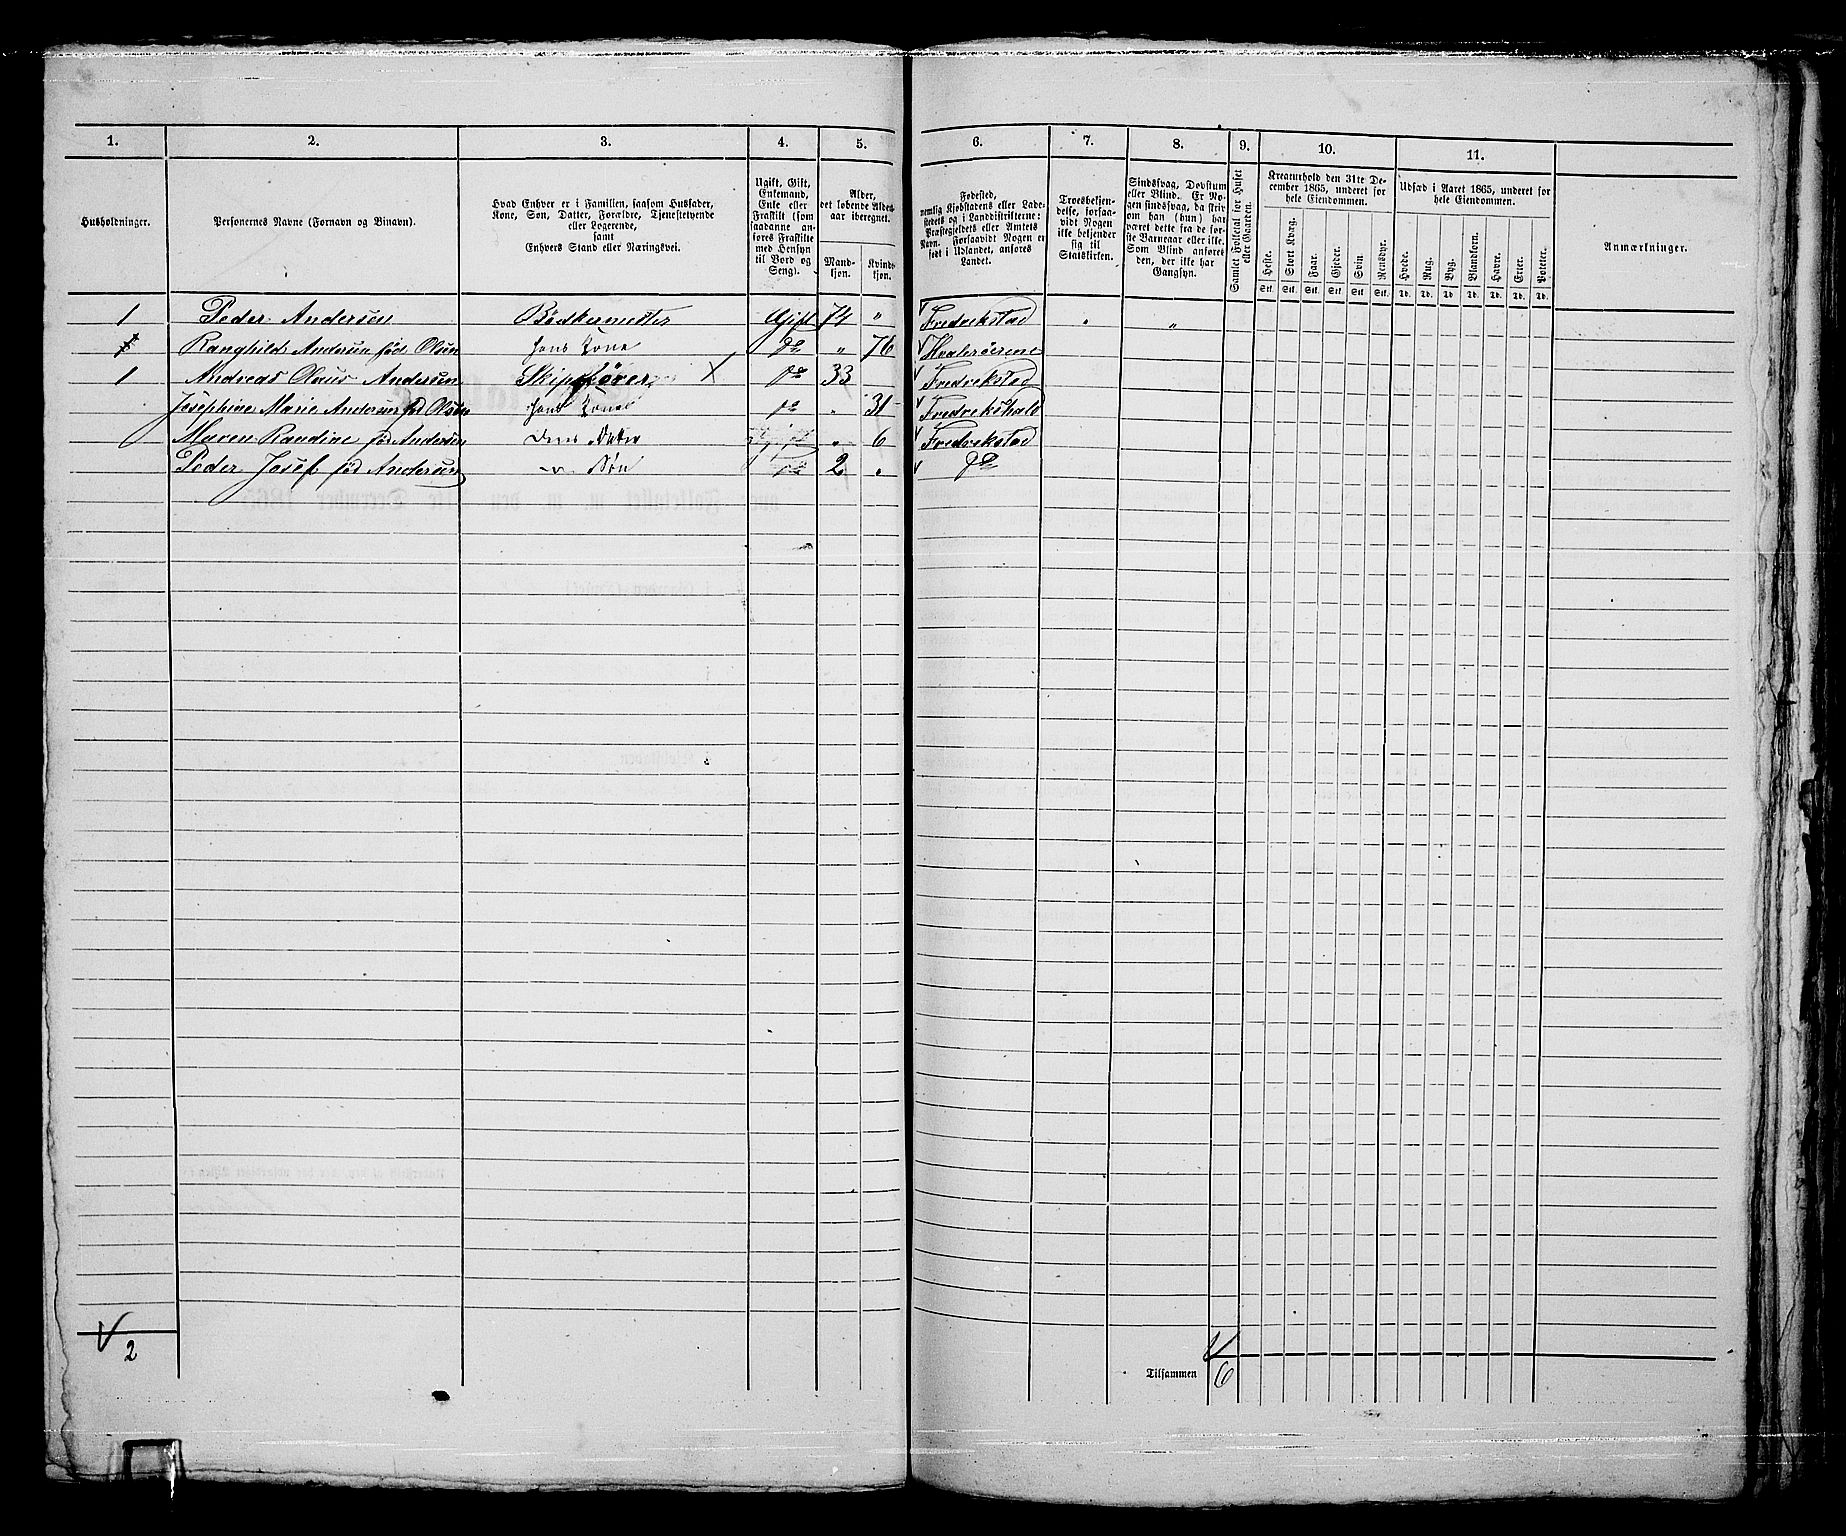 1. 2. 3. 4. 5. 6. 7. 8. 9. 10. 11.
Husholdninger.
Personernes Navne (Fornavn og Binavn).
Hvad Enhver er i Familien, saasom Husfader,
Kone, Søn, Datter, Forældre, Tjenestetyende
eller Logerende,
samt
Enhvers Stand eller Næringsvei.
Ugift, Gift,
Enkemand,
Enke eller
Fraskilt (som
saadanne an-
føres Fraskilte
med Hensyn
til Bord og
Seng).
Alder,
det løbende Alders-
aar iberegnet.
Mand-
kjøn.
Kvind-
kjøn.
Fødested,
nemlig Kjøbstadens eller Lade-
stedets og i Landdistrikterne:
Præstegjeldets eller Amtets
Navn. Forsaavidt Nogen er
født i Udlandet, anføres
Landet.
Troesbekjen-
delse, forsaa-
vidt Nogen
ikke bekjender
sig til
Statskirken.
Sindssvag, Døvstum
eller Blind. Er No-
gen sindssvag, da skriv
om han (hun) har
været dette fra de før-
ste Barneaar eller ikke.
Som Blind anføres
den, der ikke har
Gangsyn.
Samlet Folketal for Huset
eller Gaarden.
Kreaturhold den 31te De-
cember 1865, underet for
hele Eiendommen.
Heste. Stort Kvæg. Faar. Gjeder. Svin. Rensdyr.
Stk. Stk. Stk. Stk. Stk. Stk.
Udsæd i Aaret 1865, underet for
hele Eiendommen.
Hvede. Rug. Byg. Blandkorn. Havre. Erter. Poteter.
Td. Td. Td. Td. Td. Td. Td.
Anmærkninger.
1 Peder Andersen Bödkermester Gift 74 " Fredrekstad " "
1 Ranghild Andersen fød Olsen hans Kone do " 76 Hvaleröerene
1 Andreas Olaus Andersen Skipsfører X do 33 Fredrekstad
Josephine Marie Andersen fød Olsen hans Kone do " 31 Fredrekshald
Maren Randine fød Andersen Dens Datter " 6 Fredrekstad
Peder Josef fød Andersen " Sön do 2 " do
2
Tilsammen 6